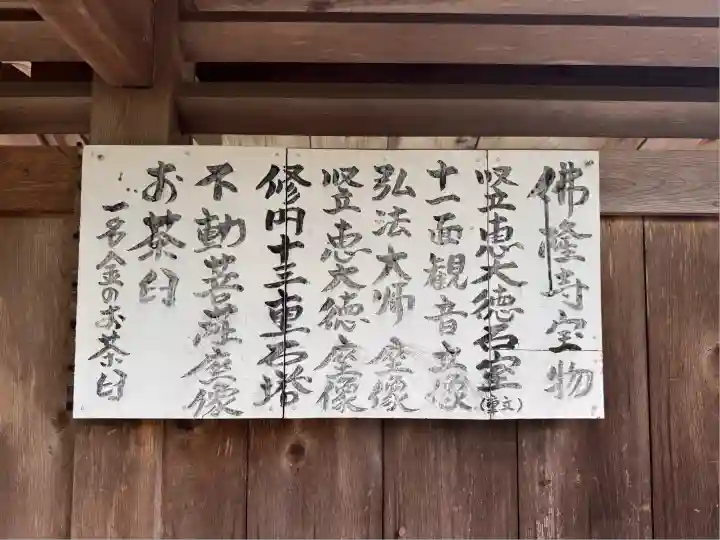 佛隆寺宝物
竪恵大徳石室(重文)
十一面観音立像
弘法大師座像
竪恵大徳座像
修円十三重石塔
不動菩薩座像
お茶臼
一名金のお茶臼